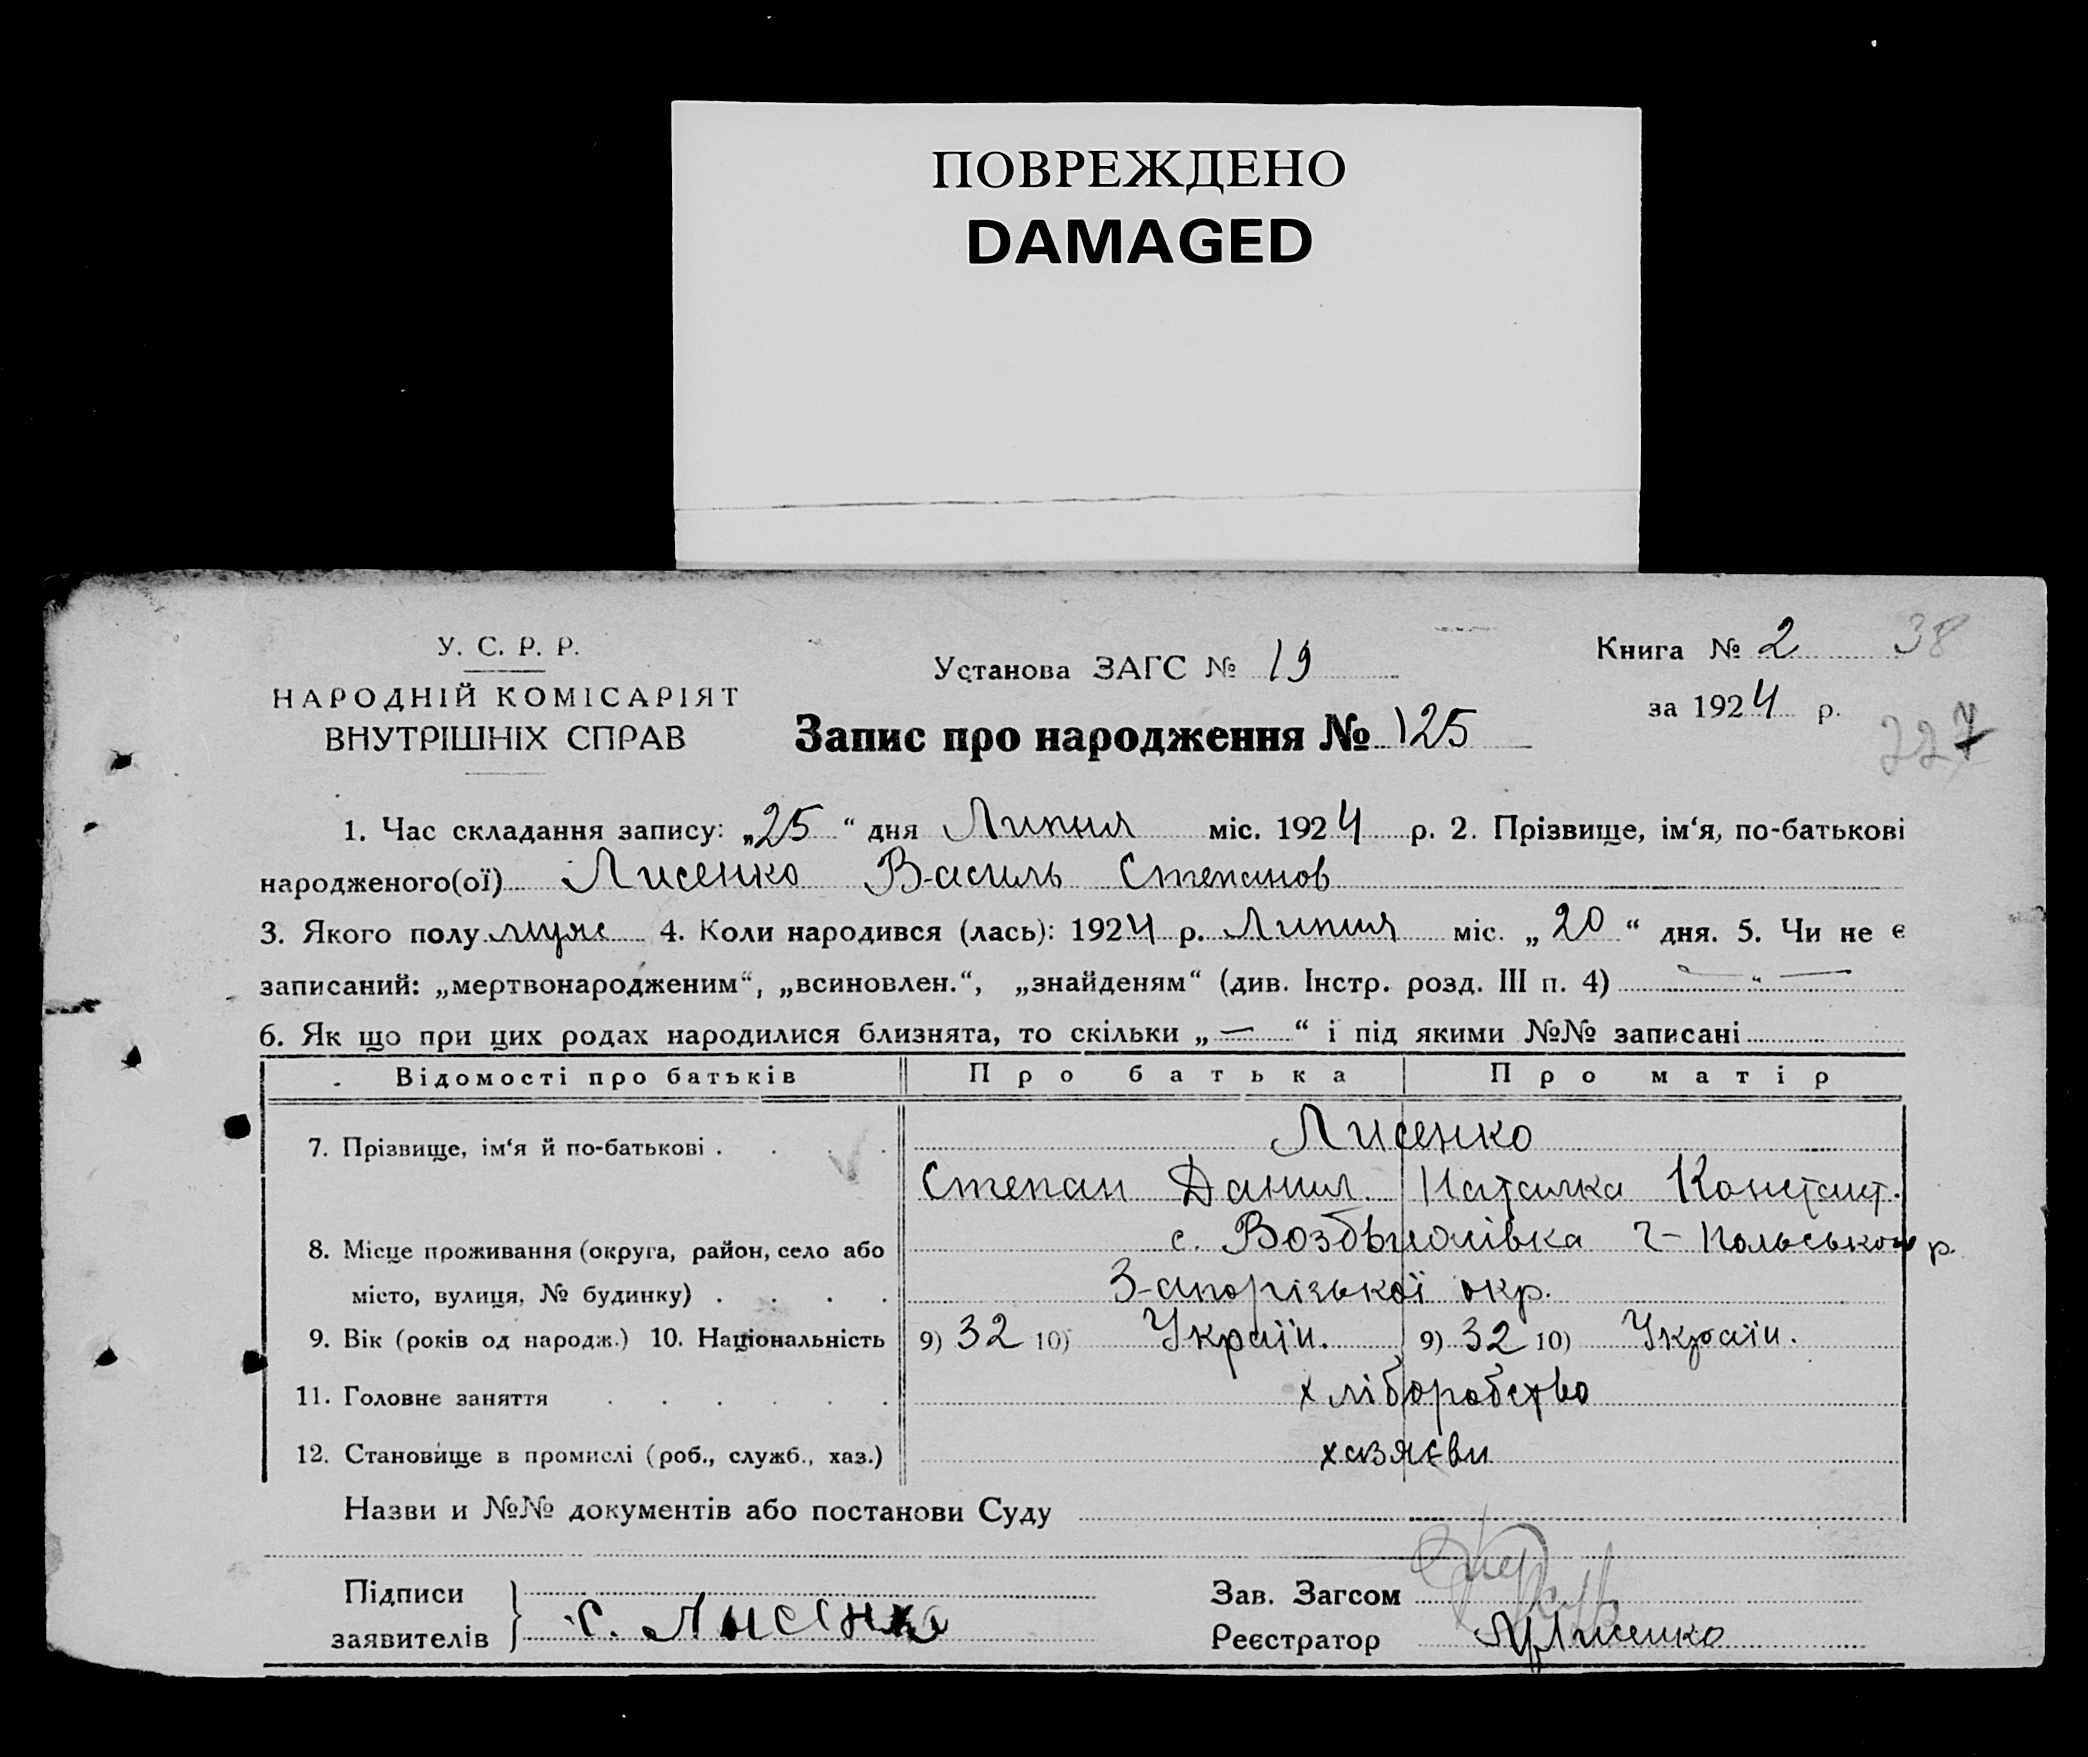 ПОВРЕЖДЕНО
DAMAGED
У. С. Р. Р.
НАРОДНІЙ КОМІСАРІЯТ
ВНУТРІШНІХ СПРАВ
Установа ЗАГС № 19
Запис про народження № 125
Книга № 2 38
за 1924 р.
227
1. Час складання запису: „25“ дня Липня міс. 1924 р. 2. Прізвище, ім‘я, по-батькові
народженого(ої) Лисенко Василь Степанов
3. Якого полу муж 4. Коли народився (лась): 1924 р. Липня міс. „20“ дня. 5. Чи не є
записаний: „мертвонародженим“, „всиновлен.“, „знайденям“ (див. Інстр. розд. III п. 4) — „ —
6. Як що при цих родах народилися близнята, то скільки „—“ і під якими №№ записані
Відомості про батьків Про батька Про матір
7. Прізвище, ім‘я й по-батькові . . . . Лисенко
Степан Данил. Наталка Констант.
8. Місце проживання (округа, район, село або с. Г- Польського р.
місто, вулиця, № будинку) . . . . Запорізької окр.
9. Вік (років од народж.) 10. Національність 9) 32 10) Україн. 9) 32 10) Україн.
11. Головне заняття . . . . . . хліборобство
12. Становище в промислі (роб., служб., хаз.) хазяєви
Назви и №№ документів або постанови Суду
Підписи
заявителів } С. Лисенко
Зав. Загсом
Реєстратор Лисенко